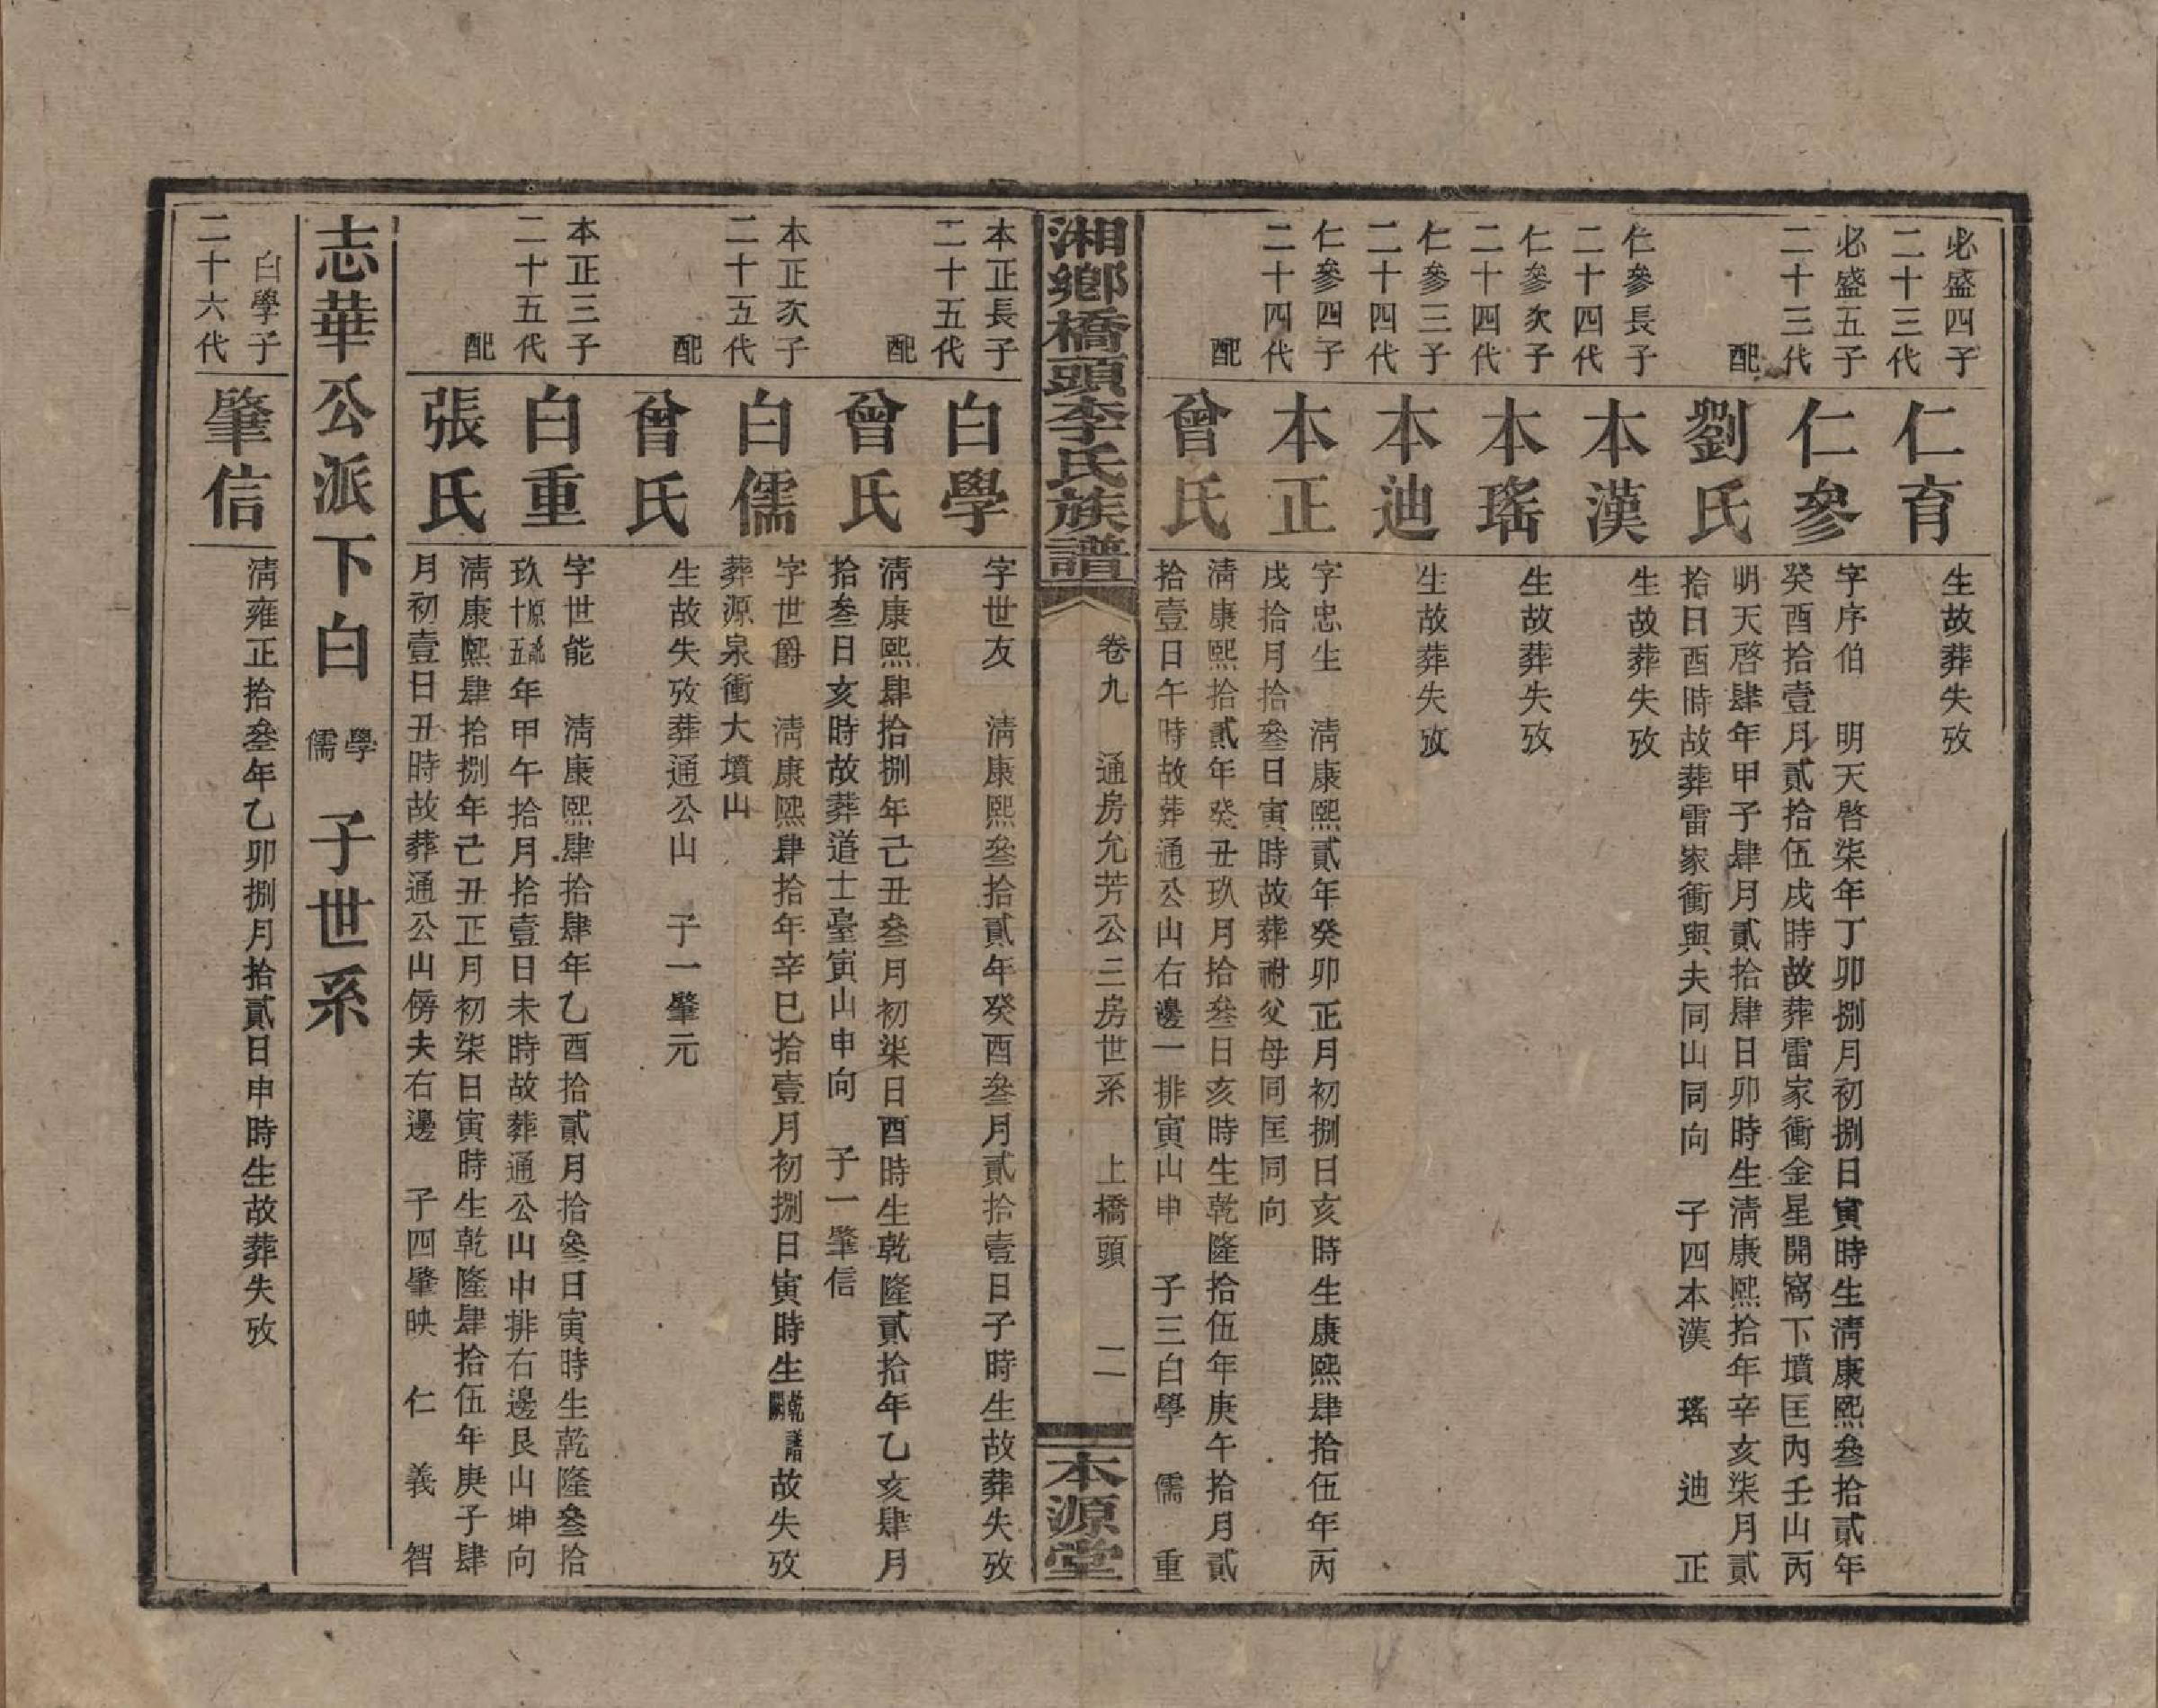 必盛四子
二十三代
仁育
生故葬失攷
必盛五子
二十三代
仁參
字序伯　明天啓柒年丁卯捌月初捌日寅時生淸康熙叄拾貳年
癸酉拾壹月貳拾伍戌時故葬雷家衝金星開窩下墳匡內壬山丙
配
劉氏
明天啓肆年甲子肆月貳拾肆日卯時生淸康熙拾年辛亥柒月貳
拾日酉時故葬雷家衝與夫同山同向　子四本漢　瑤　迪　正
仁參長子
二十四代
本漢
生故葬失攷
仁參次子
二十四代
本瑤
生故葬失攷
仁參三子
二十四代
本迪
生故葬失攷
仁參四子
二十四代
本正
字忠生　淸康熙貳年癸卯正月初捌日亥時生康熙肆拾伍年丙
戌拾月拾叄日寅時故葬祔父母同匡同向
配
曾氏
淸康熙拾貳年癸丑玖月拾叄日亥時生乾隆拾伍年庚午拾月貳
拾壹日午時故葬通公山右邊一排寅山申　子三白學　儒　重
湘鄉橋頭李氏族譜
卷九　通房允芳公三房世系　上橋頭　二
本源堂
本正長子
二十五代
白學
字世友　淸康熙叄拾貳年癸酉叄月貳拾壹日子時生故葬失攷
配
曾氏
淸康熙肆拾捌年己丑叄月初柒日酉時生乾隆貳拾年乙亥肆月
拾叄日亥時故葬道士臺寅山申向　子一肇信
本正次子
二十五代
白儒
字世爵　淸康熙肆拾年辛巳拾壹月初捌日寅時生乾譜闕故失攷
葬源泉衝大墳山
配
曾氏
生故失攷葬通公山　子一肇元
本正三子
二十五代
白重
字世能　淸康熙肆拾肆年乙酉拾貳月拾叄日寅時生乾隆叄拾
玖原譌十五年甲午拾月拾壹日未時故葬通公山中排右邊艮山坤向
配
張氏
淸康熙肆拾捌年己丑正月初柒日寅時生乾隆肆拾伍年庚子肆
月初壹日丑時故葬通公山傍夫右邊　子四肇映　仁　義　智
志華公派下白學儒　子世系
白學子
二十六代
肇信
淸雍正拾叄年乙卯捌月拾貳日申時生故葬失攷